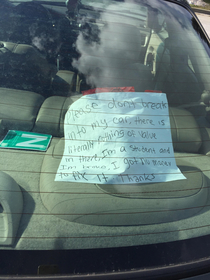 Please dont break
into my car, there is
literally nothing of value
in there. I'm a student and
I'm broke I got no money
to fix it. Thanks
N